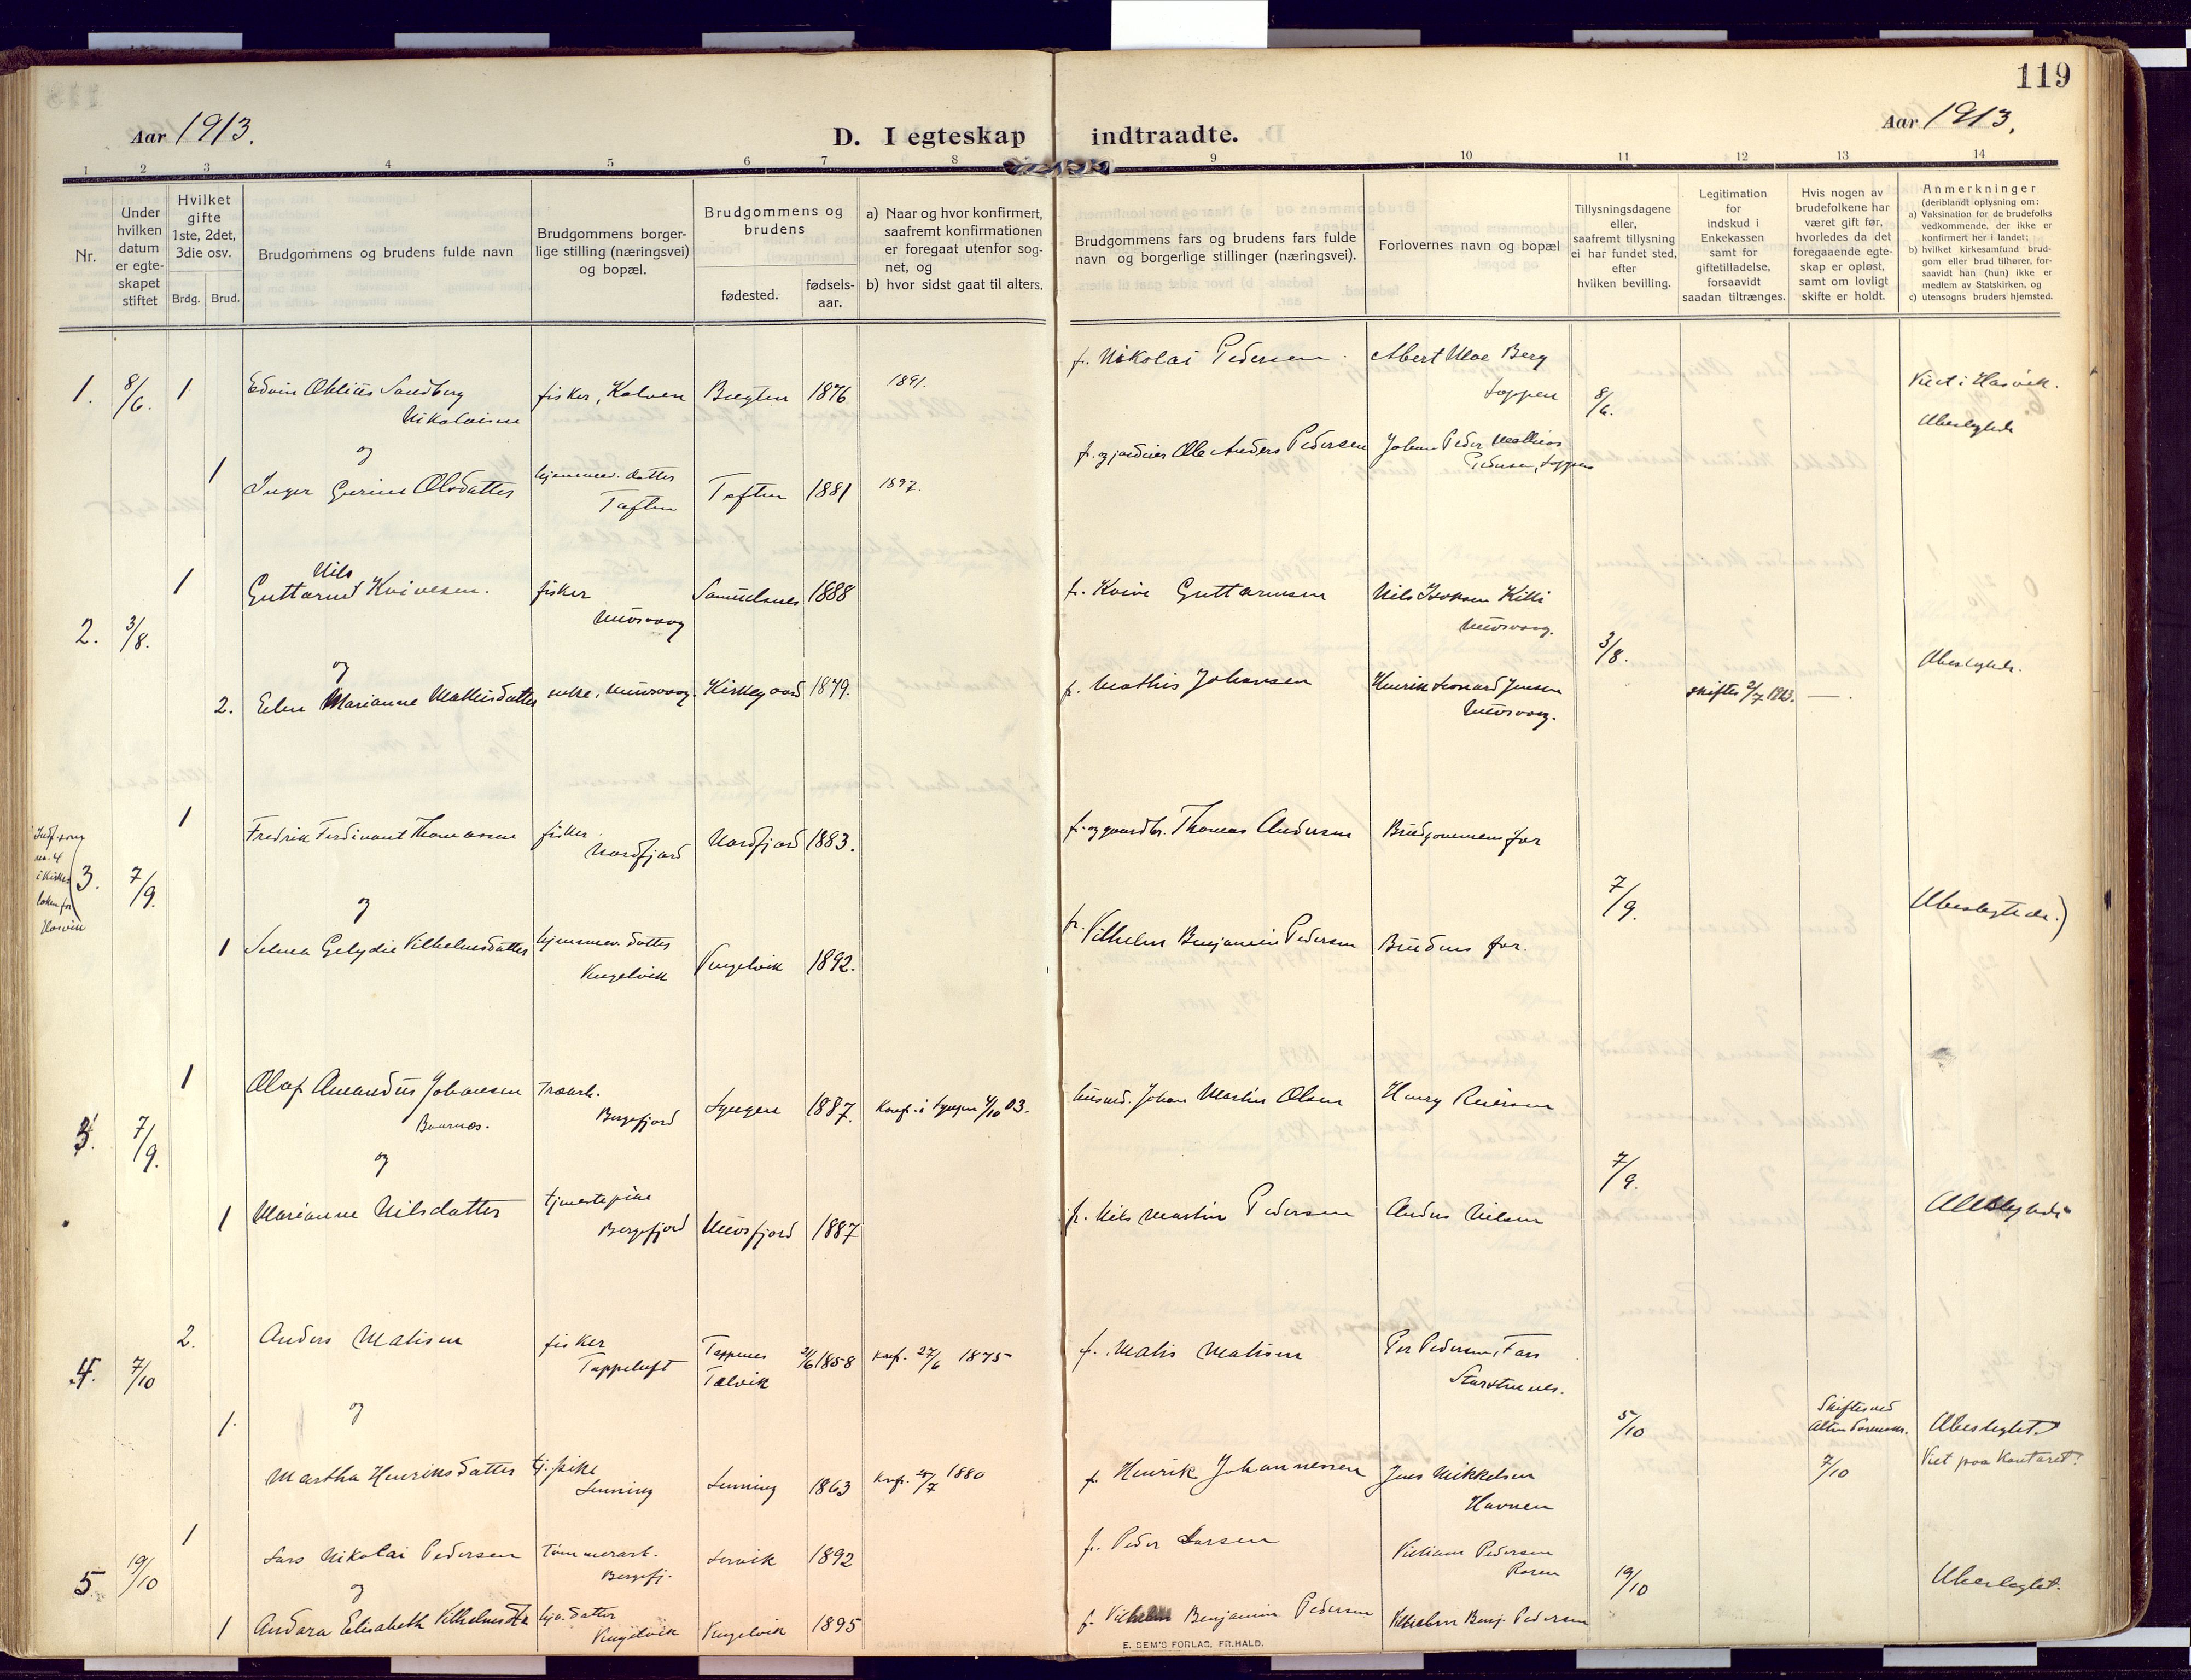 119
Aar 1913.
D. I egteskap indtraadte.
Aar 1913.
1 2 3 4 5 6 7 8 9 10 11 12 13 14
Nr.
Under hvilken datum er egte-skapet stiftet
Hvilket gifte 1ste, 2det, 3die osv.
Brdg. Brud.
Brudgommens og brudens fulde navn
Brudgommens borger-lige stilling (næringsvei) og bopæl.
Brudgommens og brudens
fødested.
fødsels-aar.
a) Naar og hvor konfirmert, saafremt konfirmationen er foregaat utenfor sog-net, og
b) hvor sidst gaat til alters.
Brudgommens fars og brudens fars fulde navn og borgerlige stillinger (næringsvei).
Forlovernes navn og bopæl
Tillysningsdagene eller, saafremt tillysning ei har fundet sted, efter hvilken bevilling.
Legitimation for indskud i Enkekassen samt for giftetilladelse, forsaavidt saadan tiltrænges.
Hvis nogen av brudefolkene har været gift før, hvorledes da det foregaaende egte-skap er opløst, samt om lovligt skifte er holdt.
Anmerkninger (deriblandt oplysning om:
a) Vaksination for de brudefolks vedkommende, der ikke er konfirmert her i landet;
b) hvilket kirkesamfund brud-gom eller brud tilhører, for-saavidt han (hun) ikke er medlem av Statskirken, og
c) utensogns bruders hjemsted.
1. 8/6. 1 Edvin Sandberg Nikolaisen fisker, Kalven 1876 1891. f. Nikolai Pedersen Berg Loppen 8/6. Viet i Hasvik. Ubeslegtede
og
1 Inger Olsdatter hjemmev. datter Toften Toften 1881 1897. f. og jordeier Ole Anders Pedersen Johan Peder Mathias Pedersen, Loppen
2. 3/8. 1 Nils Guttormsen fisker Nuvsvaag 1888 f. Guttormsen Nils Kitti Nuvsvaag. 3/8. Ubeslegtede.
og
2. Elen Marianne Mathisdatter enke, Nuvsvaag. Kirkegaard 1879. f. Mathis Johansen Henrik Leonard Jensen Nuvsvaag. skifte 2/7 1913. —
Indf. som no. 4 i Kirkeboken for Hasvik
3. 7/9. 1 Fredrik Ferdinant Thomassen fisker Nordfjord Nordfjord 1883. f. og gaardbr. Thomas Andersen Brudgommens far 7/9. Ubeslegtede.)
og
1 Selma Vilhelmsdatter hjemmev. datter 1892. f. Vilhelm Benjamin Pedersen Brudens far.
3. 7/9. 1 Olaf Amandus Johansen Bergsfjord Lyngen 1887. Konf. i Lyngen 4/10 03. husmd. Johan Martin Olsen Henry Reiersen 7/9.
og
1 Marianne Nilsdatter tjenestepike Bergsfjord Nuvsfjord 1887 f. Nils Martin Pedersen Anders Nilsen Ubeslegtede
4. 7/10 2. Anders Matisen fisker Tappeluft Tappenes Talvik 1858 Konf. 27/6 1875 f. Matis Matisen Per Pedersen, 5/10 Skiftesved Alten Sorensk. 7/10 Ubeslegtet. Viet paa Kontoret!
og
1. Martha Henriksdatter tj. pike 1863 Konf. 25/7 1880 f. Henrik Johannessen Jens Mikkelsen Havnen
5 19/10 1 Lars Nikolai Pedersen Tømmerarb. Bergsfj. 1892 f. Peder Larsen Pedersen 19/10 Ubeslegtet.
og
1 Andara Elisabeth hjv. datter 1895 f. Vilhelm Benjamin Pedersen Vilhelm Benj. Pedersen
E. SEM'S FORLAG, FR.HALD.